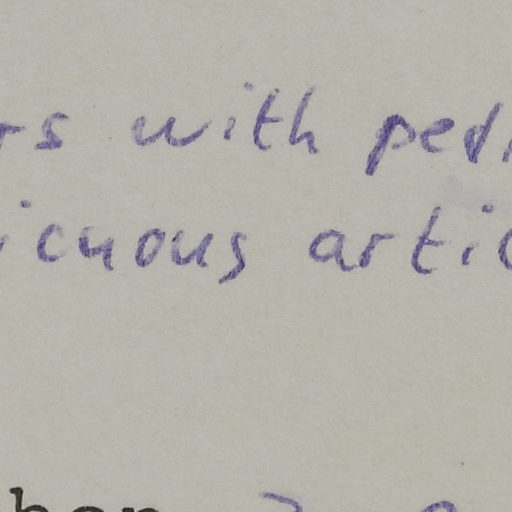 rs with ped
icuous artic